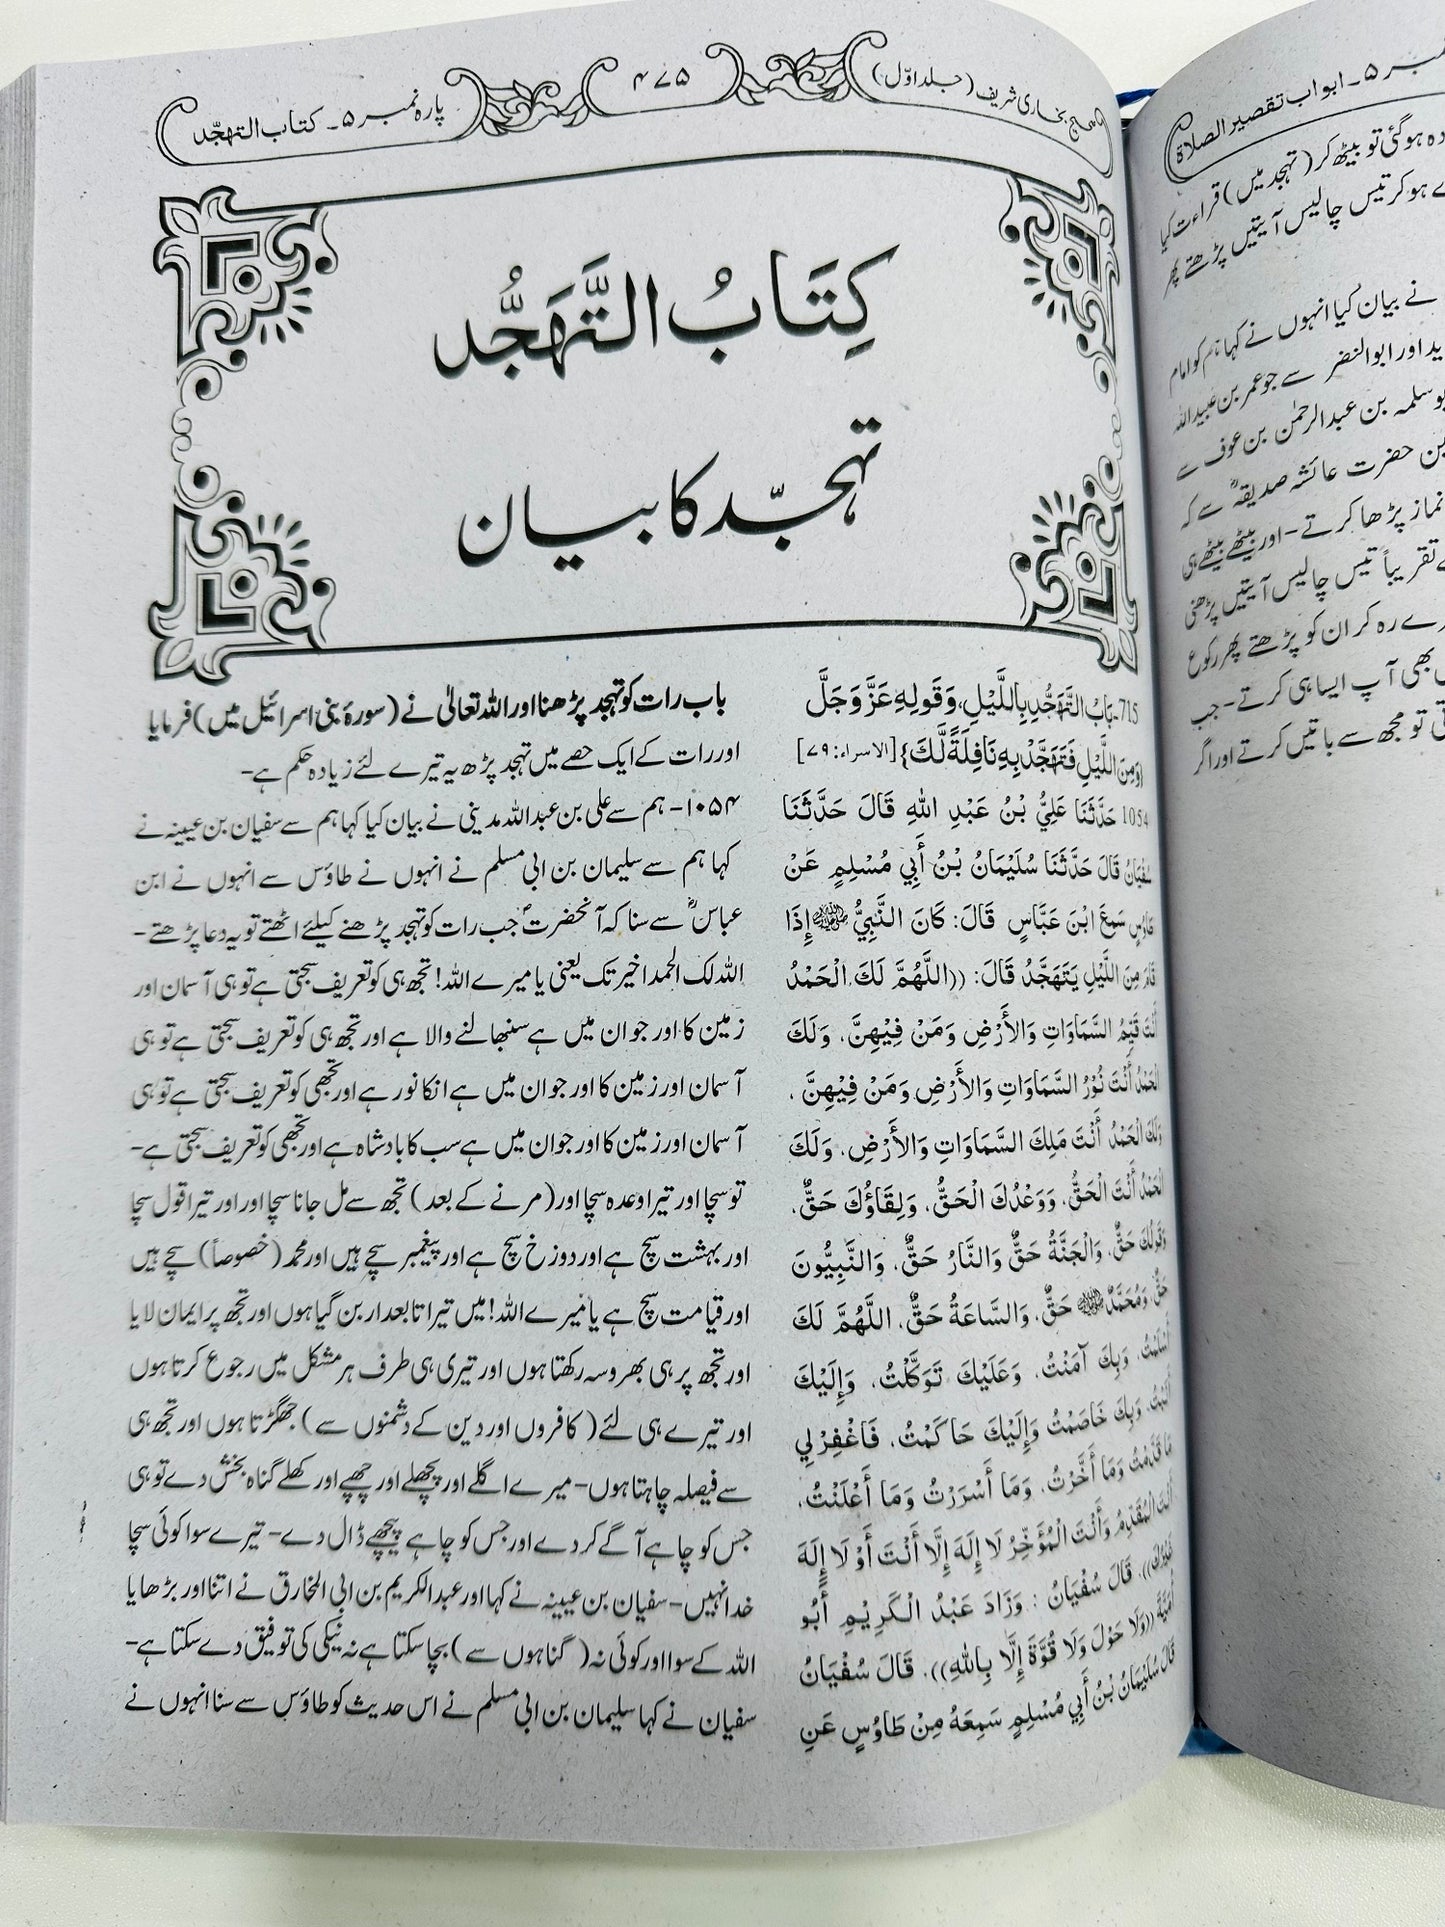 صحیح بخاری شریف (جلد اوّل)
۴۷۵
پارہ نمبر ۵۔ کتاب التہجّد
کِتَابُ التَّهَجُّد
تہجّد کا بیان
715-بَابُ التَّهَجُّدِ بِاللَّيْلِ، وَقَوْلِهِ عَزَّ وَجَلَّ
{وَمِنَ اللَّيْلِ فَتَهَجَّدْ بِهِ نَافِلَةً لَّكَ} [الاسراء: ۷۹]
1054 حَدَّثَنَا عَلِيُّ بْنُ عَبْدِ اللهِ قَالَ حَدَّثَنَا
سُفْيَانُ قَالَ حَدَّثَنَا سُلَيْمَانُ بْنُ أَبِي مُسْلِمٍ عَنْ
طَاوُسٍ سَمِعَ ابْنَ عَبَّاسٍ قَالَ: كَانَ النَّبِيُّ ﷺ إِذَا
قَامَ مِنَ اللَّيْلِ يَتَهَجَّدُ قَالَ: ((اللَّهُمَّ لَكَ الْحَمْدُ
أَنْتَ قَيِّمُ السَّمَاوَاتِ وَالأَرْضِ وَمَنْ فِيْهِنَّ، وَلَكَ
الْحَمْدُ أَنْتَ نُوْرُ السَّمَاوَاتِ وَالأَرْضِ وَمَنْ فِيْهِنَّ،
وَلَكَ الْحَمْدُ أَنْتَ مَلِكَ السَّمَاوَاتِ وَالأَرْضِ، وَلَكَ
الْحَمْدُ أَنْتَ الْحَقُّ، وَوَعْدُكَ الْحَقُّ، وَلِقَاؤُكَ حَقٌّ،
وَقَولُكَ حَقٌّ، وَالْجَنَّةُ حَقٌّ وَالنَّارُ حَقٌّ، وَالنَّبِيُّونَ
حَقٌّ، وَمُحَمَّدٌ ﷺ حَقٌّ، وَالسَّاعَةُ حَقٌّ، اللَّهُمَّ لَكَ
أَسْلَمْتُ، وَبِكَ آمَنْتُ، وَعَلَيْكَ تَوَكَّلْتُ، وَإِلَيْكَ
أَنَبْتُ، وَبِكَ خَاصَمْتُ وَإِلَيْكَ حَاكَمْتُ، فَاغْفِرْلِي
مَا قَدَّمْتُ وَمَا أَخَّرْتُ، وَمَا أَسْرَرْتُ وَمَا أَعْلَنْتُ،
أَنْتَ الْمُقَدِّمُ وَأَنْتَ الْمُؤَخِّرُ لَا إِلَهَ إِلَّا أَنْتَ أَوْ لَا إِلَهَ
غَيْرُكَ)). قَالَ سُفْيَانُ : وَزَادَ عَبْدُ الْكَرِيْمِ أَبُو
أُمَيَّةَ ((وَلَا حَوْلَ وَلَا قُوَّةَ إِلَّا بِاللهِ)). قَالَ سُفْيَانُ
قَالَ سُلَيْمَانُ بْنُ أَبِي مُسْلِمٍ سَمِعَهُ مِنْ طَاوُسٍ عَنِ
باب رات کو تہجد پڑھنا اور اللہ تعالیٰ نے (سورۂ بنی اسرائیل میں) فرمایا
اور رات کے ایک حصے میں تہجد پڑھ یہ تیرے لئے زیادہ حکم ہے-
۱۰۵۴- ہم سے علی بن عبداللہ مدینی نے بیان کیا کہا ہم سے سفیان بن عیینہ نے
کہا ہم سے سلیمان بن ابی مسلم نے انہوں نے طاؤس سے انہوں نے ابن
عباسؓ سے سنا کہ آنحضرتؐ جب رات کو تہجد پڑھنے کیلئے اٹھتے تو یہ دعا پڑھتے-
اللہ لک الحمد اخیر تک یعنی یا میرے اللہ! تجھ ہی کو تعریف سجتی ہے تو ہی آسمان اور
زمین کا اور جو ان میں ہے سنبھالنے والا ہے اور تجھ ہی کو تعریف سجتی ہے تو ہی
آسمان اور زمین کا اور جو ان میں ہے انکا نور ہے اور تجھی کو تعریف سجتی ہے تو ہی
آسمان اور زمین کا اور جو ان میں ہے سب کا بادشاہ ہے اور تجھی کو تعریف سجتی ہے-
تو سچا اور تیرا وعدہ سچا اور (مرنے کے بعد) تجھ سے مل جانا سچا اور اور تیرا قول سچا
اور بہشت سچ ہے اور دوزخ سچ ہے اور پیغمبر سچے ہیں اور محمد (خصوصاً) سچے ہیں
اور قیامت سچ ہے یا میرے اللہ! میں تیرا تابعدار بن گیا ہوں اور تجھ پر ایمان لایا
اور تجھ پر ہی بھروسہ رکھتا ہوں اور تیری ہی طرف ہر مشکل میں رجوع کرتا ہوں
اور تیرے ہی لئے ( کافروں اور دین کے دشمنوں سے) جھگڑتا ہوں اور تجھ ہی
سے فیصلہ چاہتا ہوں- میرے اگلے اور پچھلے اور چھپے اور کھلے گناہ بخش دے تو ہی
جس کو چاہے آگے کر دے اور جس کو چاہے پیچھے ڈال دے- تیرے سوا کوئی سچا
خدا نہیں- سفیان بن عیینہ نے کہا اور عبدالکریم بن ابی المخارق نے اتنا اور بڑھایا
اللہ کے سوا اور کوئی نہ ( گناہوں سے) بچا سکتا ہے نہ نیکی کی توفیق دے سکتا ہے-
سفیان نے کہا سلیمان بن ابی مسلم نے اس حدیث کو طاؤس سے سنا انہوں نے
۵۔ ابواب تقصیر الصلاۃ
ہوگئی تو بیٹھ کر (تہجد میں) قراءت کیا
ہو کر تیس چالیس آیتیں پڑھتے پھر
نے بیان کیا انہوں نے کہا ہم کو امام
اور ابوالنضر سے جو عمر بن عبیداللہ
سلمہ بن عبدالرحمٰن بن عوف سے
حضرت عائشہ صدیقہؓ سے کہ
نماز پڑھا کرتے- اور بیٹھے بیٹھے ہی
تقریباً تیس چالیس آیتیں پڑھنی
رہ کر ان کو پڑھتے پھر رکوع
بھی آپ ایسا ہی کرتے- جب
تو مجھ سے باتیں کرتے اور اگر